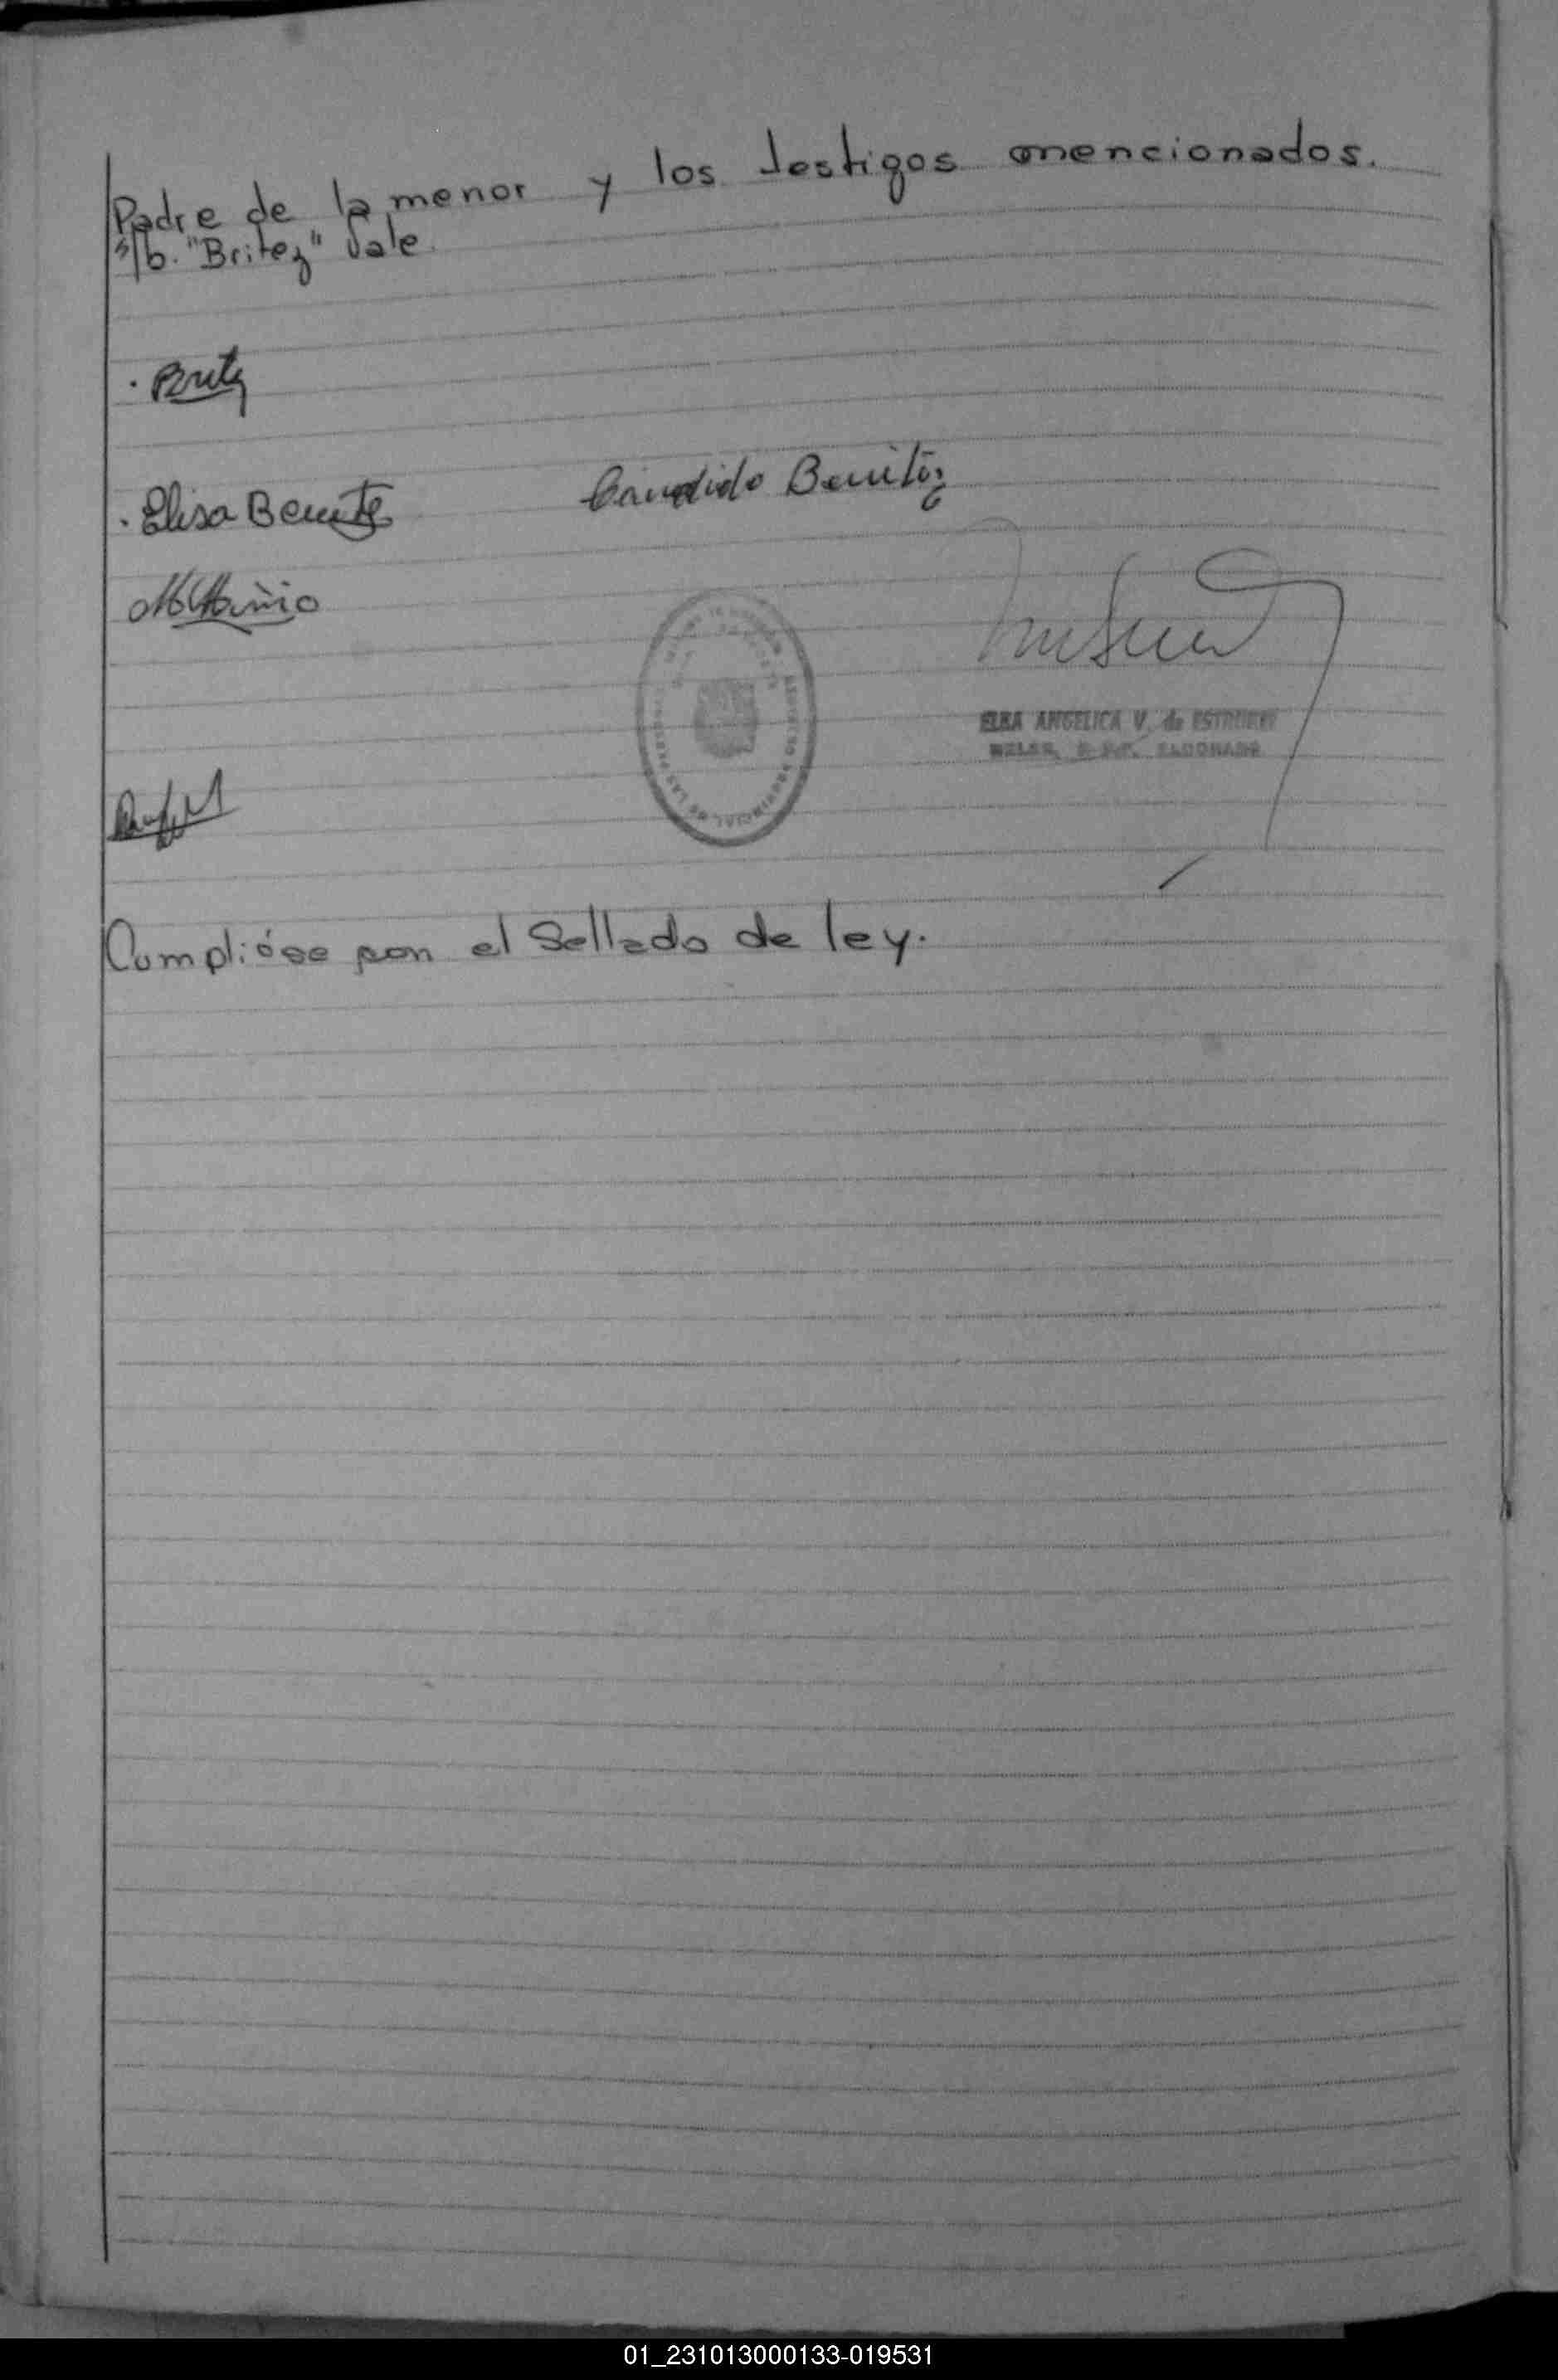 Padre de la menor y los testigos mencionados.
s/b. "Britez" Vale.
Britez
Elisa Benitez
Candido Benitez
ANGELICA V. de
ELDORADO
Cumplióse con el Sellado de ley.
01_231013000133-019531